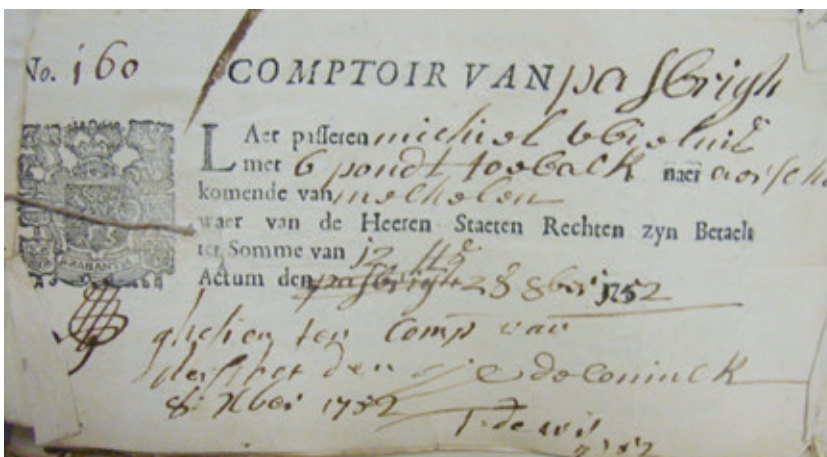 No. 160 COMPTOIR VAN pasbrigh
LAet passeren michiel
met 6 pondt toeback naer aerscho
komende van mechelen
waer van de Heeren Staeten Rechten zyn Betaelt
ter Somme van
BRABANTS
Actum den pasbrigh 28 8ber 1752
ghesien ten Comp van
den J C de Coninck
8 Nber 1752